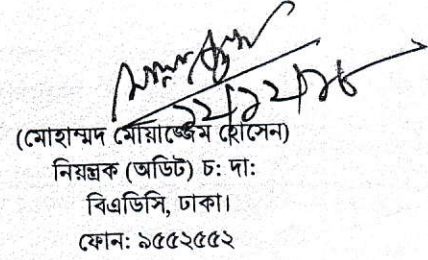 (মোহাম্মদ মোয়াজ্জেম হোসেন)
নিয়ন্ত্রক (অডিট) চ: দা:
বিএডিসি, ঢাকা।
ফোন: ৯৫৫২৫৫২